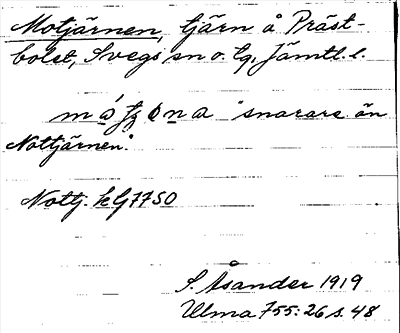 Motjärnen, tjärn å Präst-
bolet, Svegs sn o. tg. Jämtl. l.
"snarare än
Nottjärnen."
Nottj. k G 7750
S. Åsander 1919
Ulma 755:26 s. 48